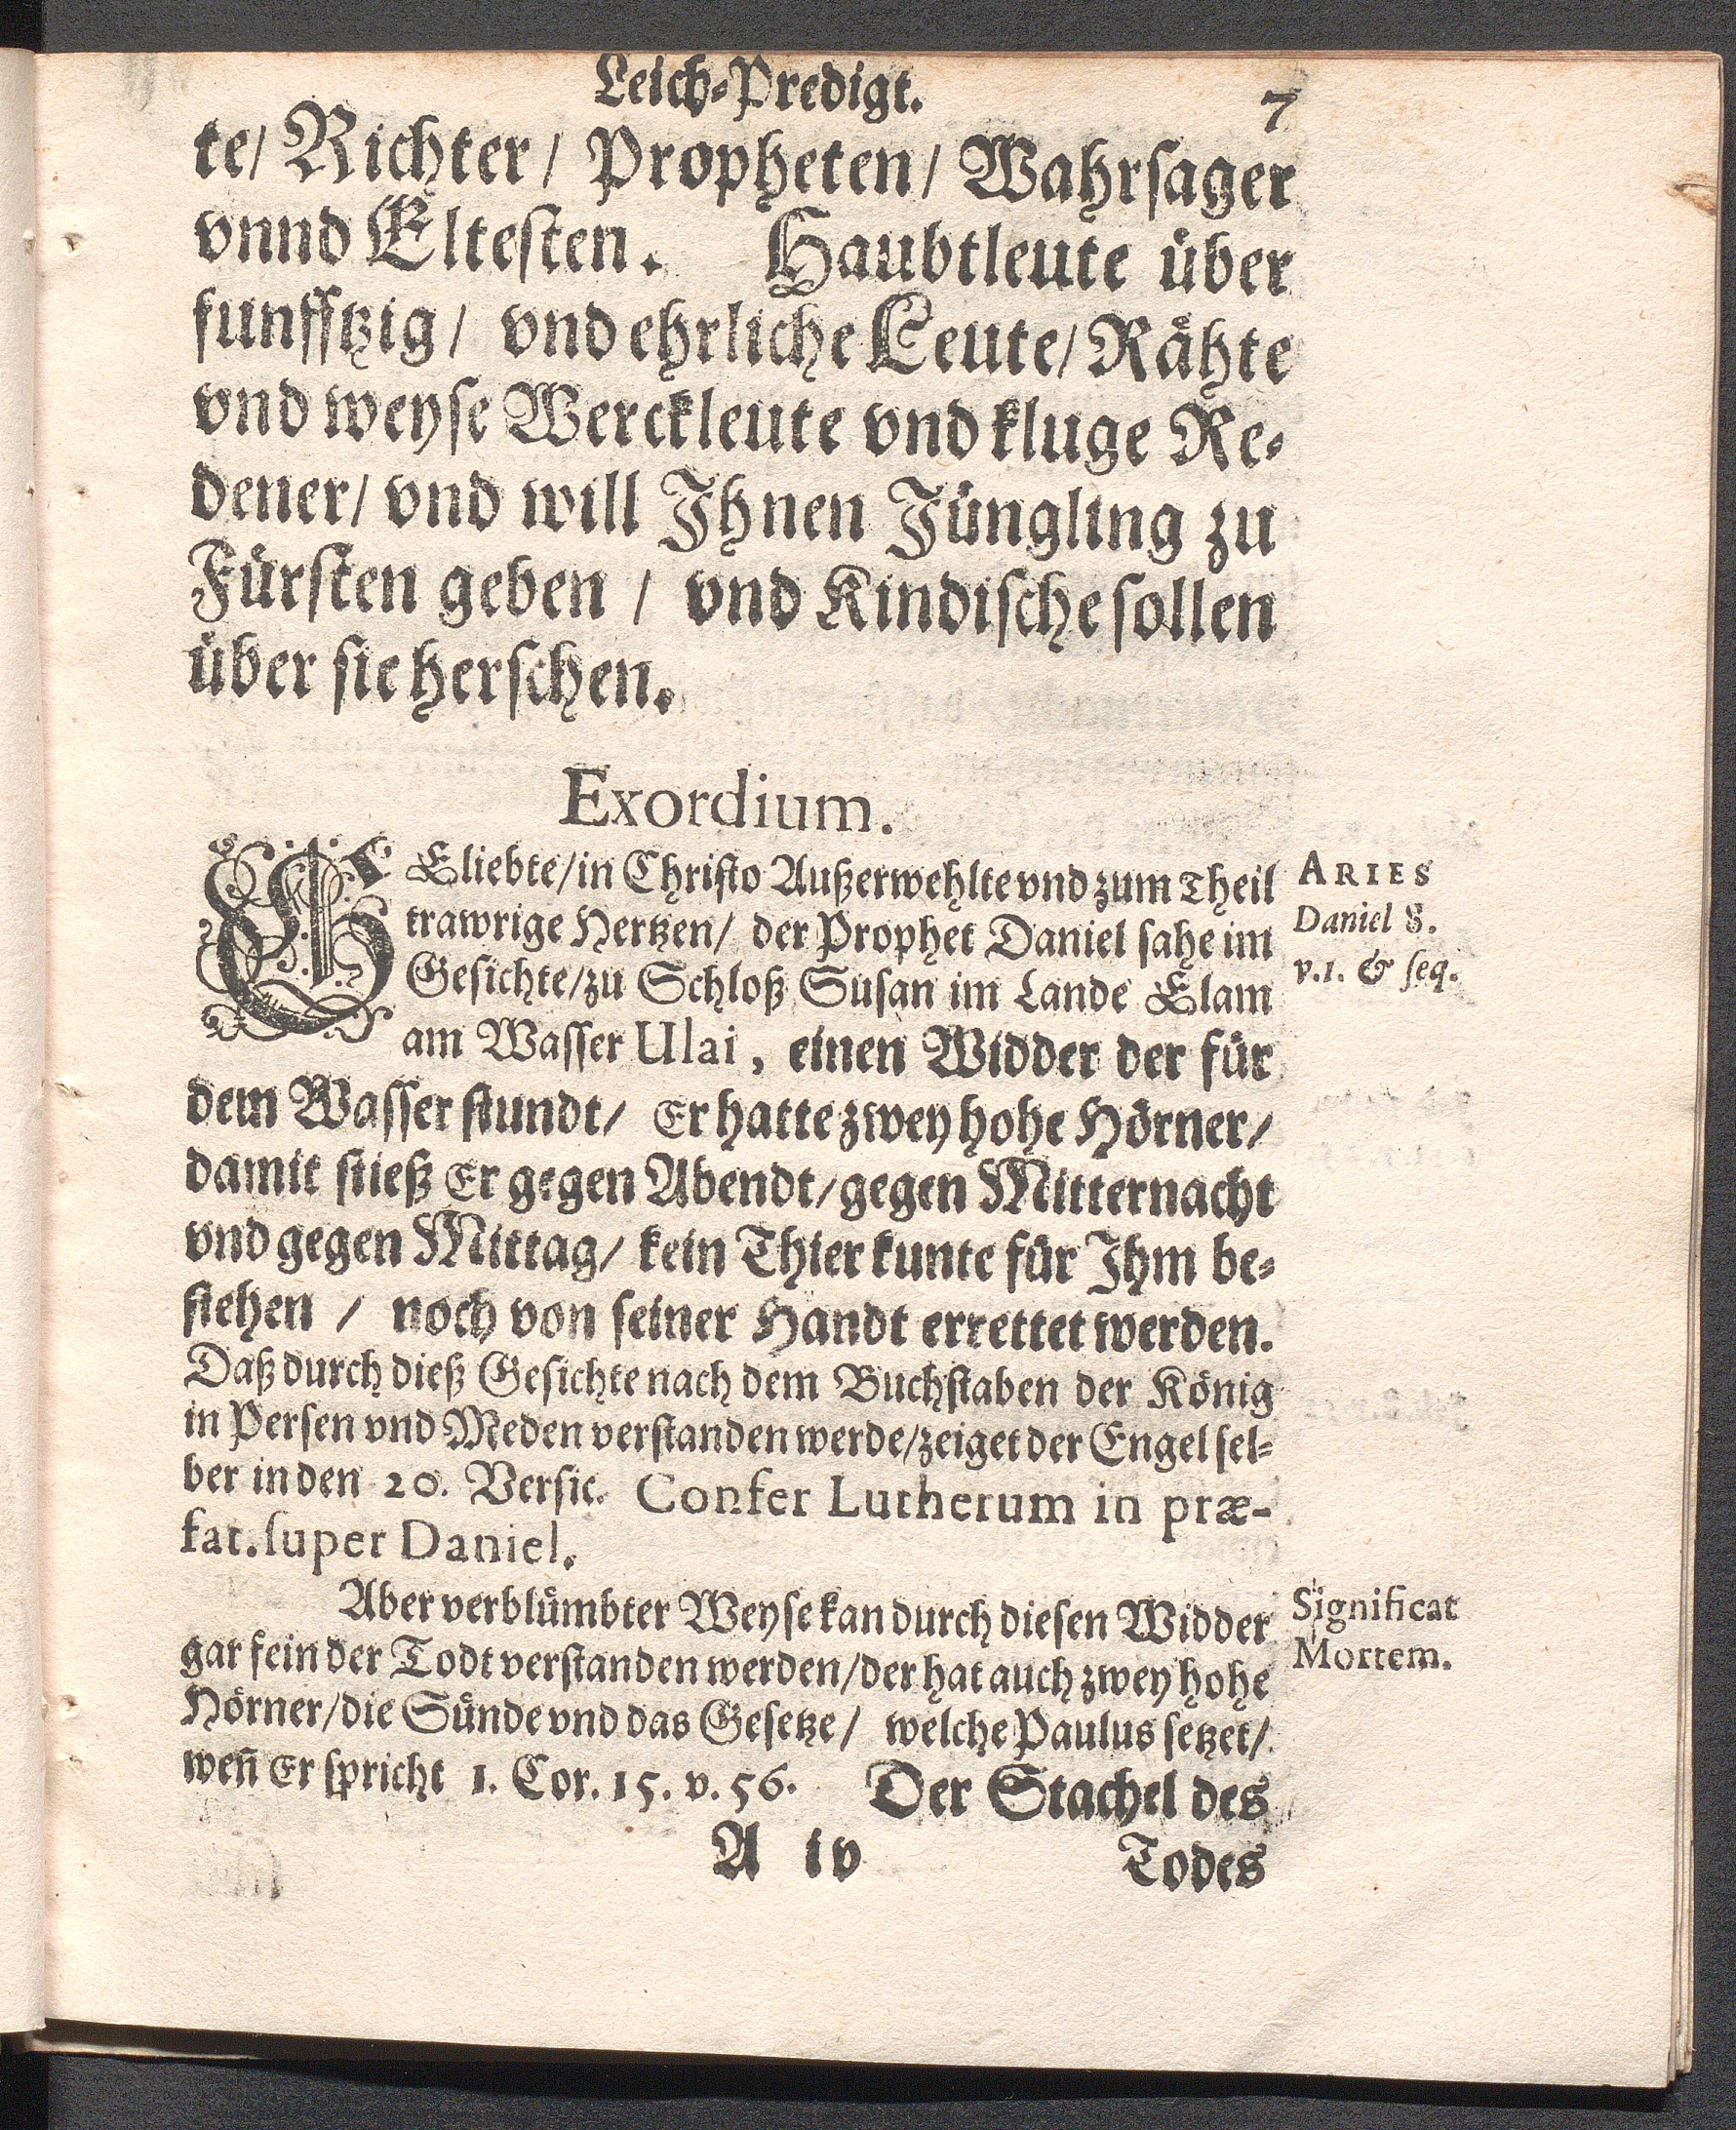 Leich-Predigt. 7
te/ Richter/ Propheten/ Wahrſager
vnnd Elteſten. Haubtleute uͤber
funfftzig/ vnd ehrliche Leute/ Raͤhte
vnd weyſe Werckleute vnd kluge Re-
dener/ vnd will Jhnen Juͤngling zu
Fuͤrſten geben / vnd Kindiſche ſollen
uͤber ſie herſchen.
Exordium.
GEliebte/in Chriſto Außerwehlte vnd zum Theil
trawrige Hertzen/ der Prophet Daniel ſahe im
Geſichte/zu Schloß Suſan im Lande Elam
am Waſſer Ulai, einen Widder der fuͤr
dem Waſſer ſtundt/ Er hatte zwey hohe Hoͤrner/
damit ſtieß Er gegen Abendt/gegen Mitternacht
vnd gegen Mittag/ kein Thier kunte fuͤr Jhm be-
ſtehen / noch von ſeiner Handt errettet werden.
Daß durch dieß Geſichte nach dem Buchſtaben der Koͤnig
in Perſen vnd Meden verſtanden werde/zeiget der Engel ſel-
ber in den 20. Verſic. Confer Lutherum in præ-
fat. ſuper Daniel.
Aber verbluͤmbter Weyſe kan durch dieſen Widder
gar fein der Todt verſtanden werden/der hat auch zwey hohe
Hoͤrner/die Suͤnde vnd das Geſetze/ welche Paulus ſetzet/
wen̄ Er ſpricht 1. Cor. 15. v. 56. Der Stachel des
A iv Todes
ARIES
Daniel 8.
v.1. & ſeq.
Significat
Mortem.